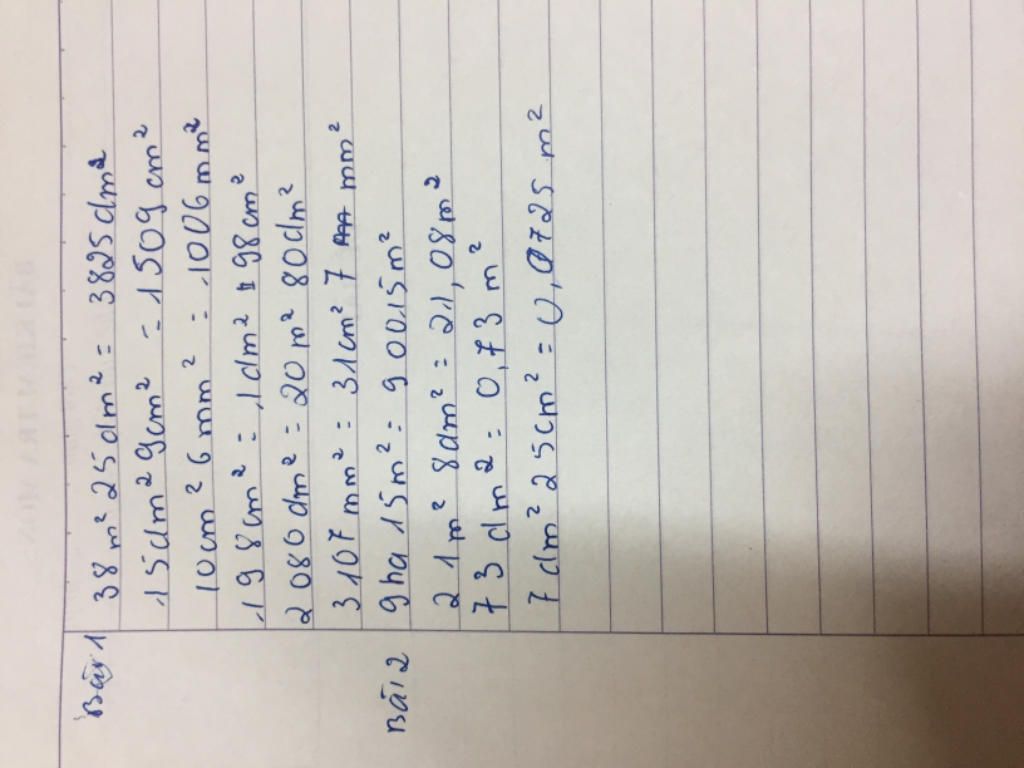 Bài 1
38 m² 25 dm² = 3825 dm²
15 dm² 9cm² = 1509 cm²
10cm² 6 mm² = 1006 mm²
198cm² = 1dm² 98cm²
2080 dm² = 20 m² 80dm²
3107 mm² = 31cm² 7 mm²
Bài 2
9ha 15m² = 90015m²
21m² 8dm² = 21,08m²
73 dm² = 0,73 m²
7 dm² 25cm² = 0,0725 m²